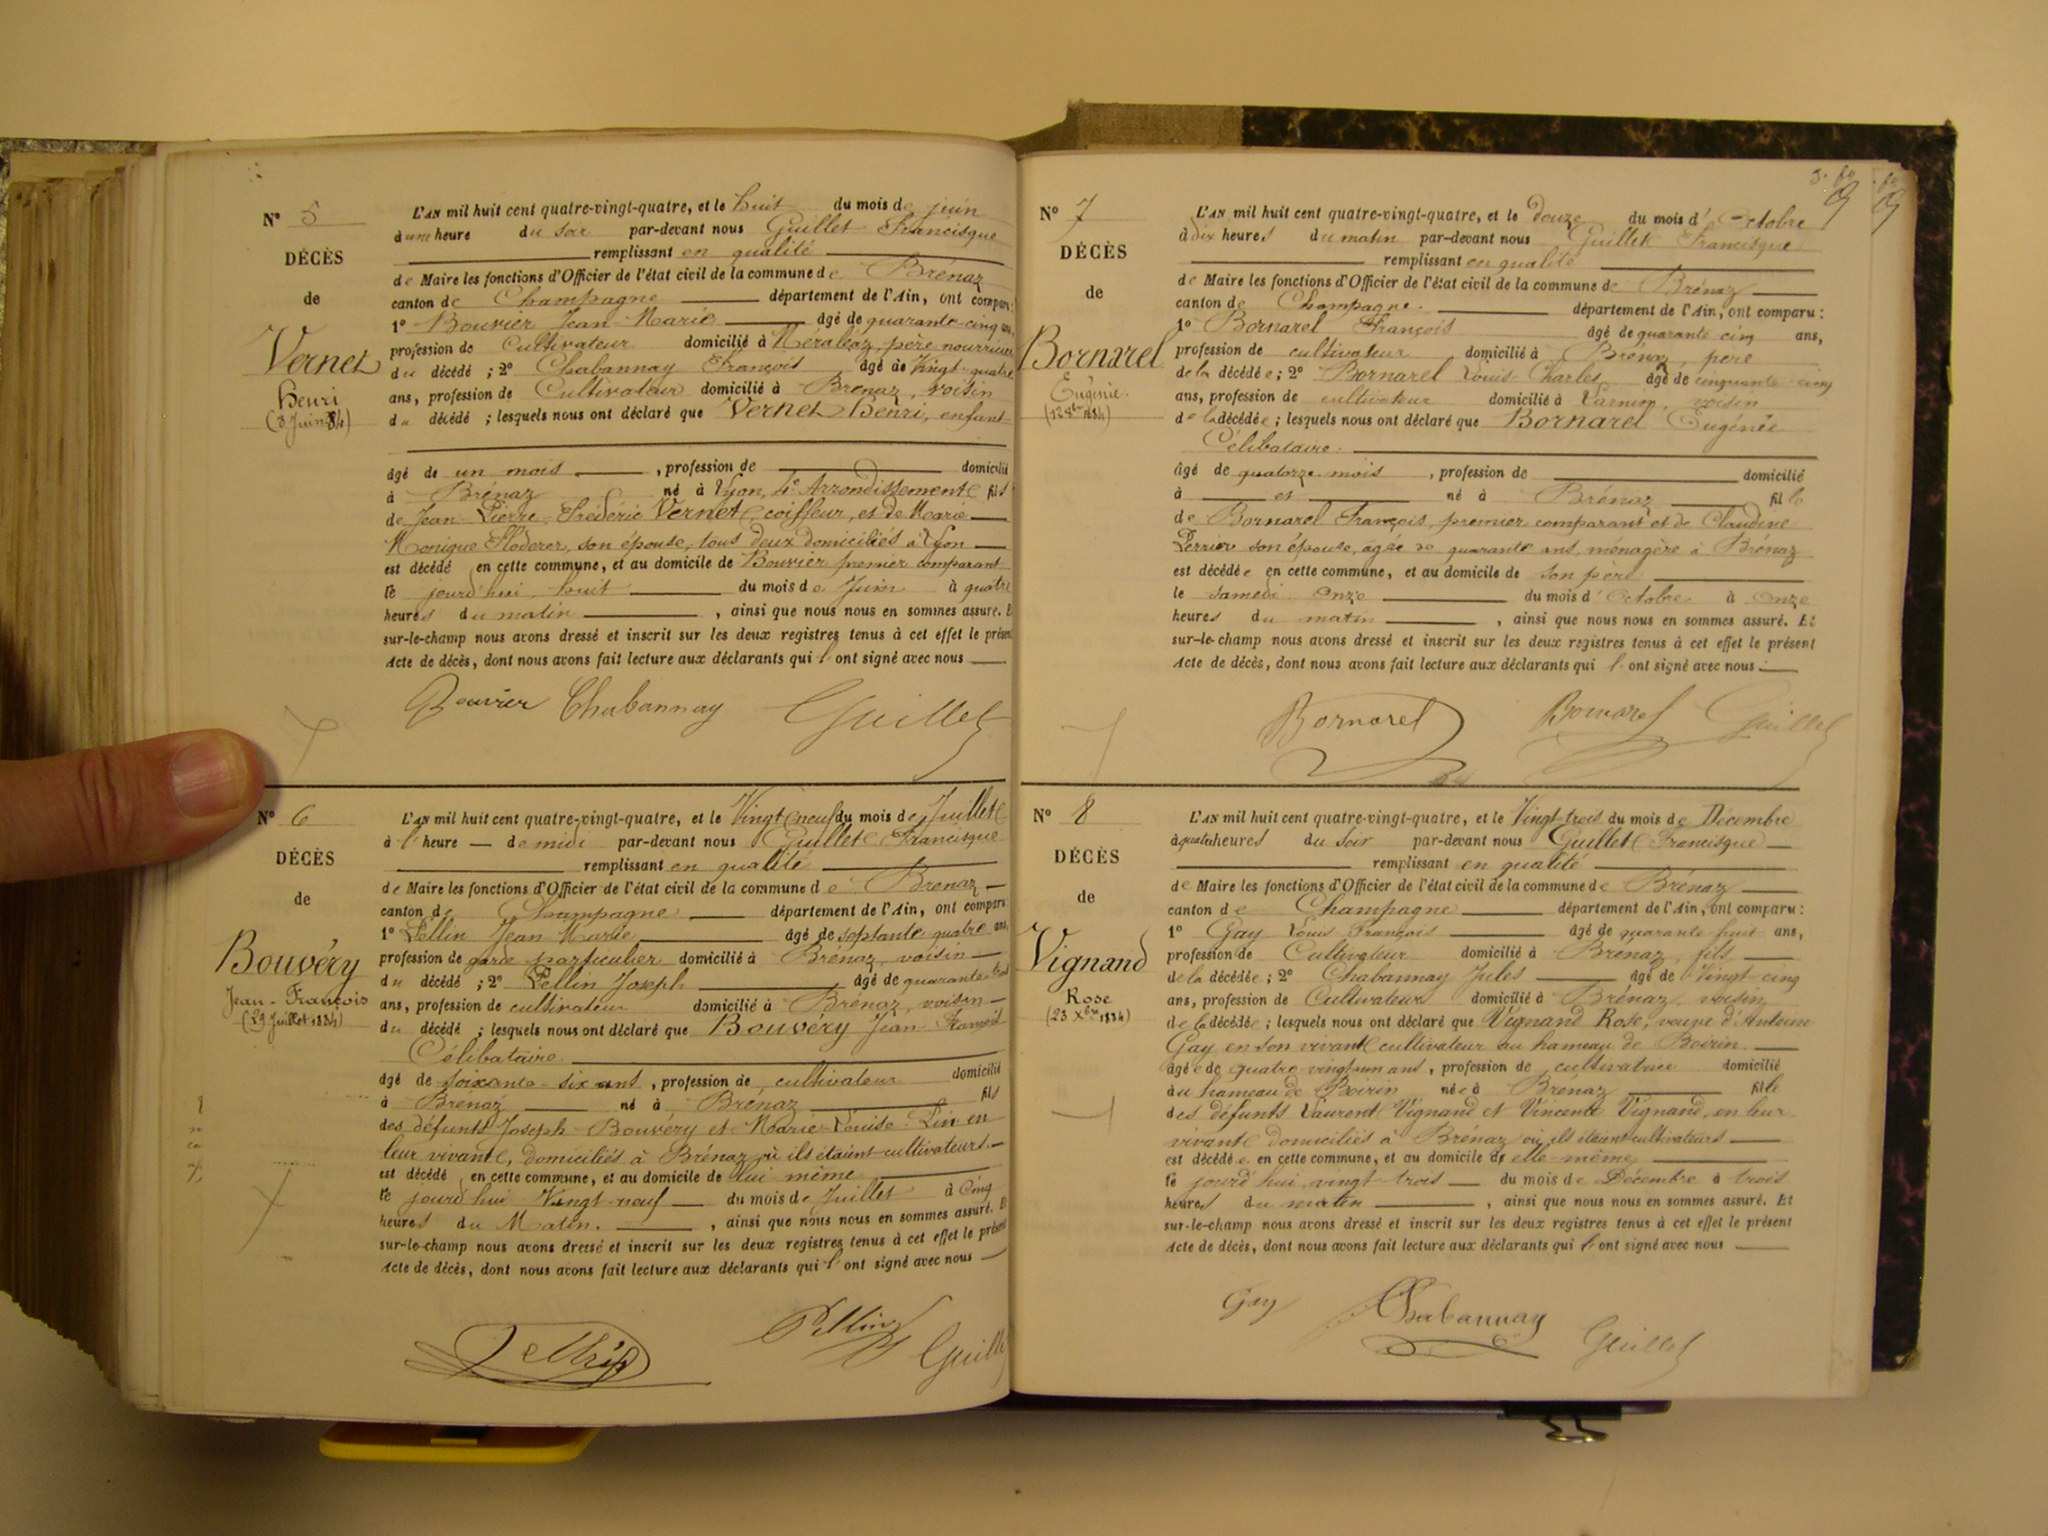 N° 5
DÉCÈS
de
Vernet
Henri
(8 Juin 84)
L'AN mil huit cent quatre-vingt-quatre, et le huit du mois de juin
à une heure du soir par-devant nous Guillet Francisque
remplissant en qualité
de Maire les fonctions d'Officier de l'état civil de la commune de Brénaz
canton de Champagne département de l'Ain, ont comparu:
1° Bouvier Jean-Marie âgé de quarante-cinq ans,
profession de Cultivateur domicilié à père nourricier
du décédé ; 2° Chabannay François âgé de Vingt-quatre
ans, profession de Cultivateur domicilié à Brénaz, voisin
du décédé ; lesquels nous ont déclaré que Vernet Henri, enfant
âgé de un mois, profession de domicilié
à Brénaz né à Lyon, 4e Arrondissement fils
de Jean-Pierre-Frédéric Vernet, coiffeur, et de Marie
Monique son épouse, tous deux domiciliés à Lyon
est décédé en cette commune, et au domicile de Bouvier premier comparant
le jourd'hui huit du mois de Juin à quatre
heures du matin, ainsi que nous nous en sommes assuré. Et
sur-le-champ nous avons dressé et inscrit sur les deux registres tenus à cet effet le présent
Acte de décès, dont nous avons fait lecture aux déclarants qui l'ont signé avec nous
Bouvier Chabannay Guillet
N° 6
DÉCÈS
de
Bouvéry
Jean-François
(29 Juillet 1884)
L'AN mil huit cent quatre-vingt-quatre, et le Vingt neuf du mois de Juillet
à l'heure de midi par-devant nous Guillet Francisque
remplissant en qualité
de Maire les fonctions d'Officier de l'état civil de la commune de Brenaz
canton de Champagne département de l'Ain, ont comparu
1° Pellin Jean Marie âgé de septante quatre ans,
profession de garde particulier domicilié à Brénaz, voisin
du décédé ; 2° Pellin Joseph âgé de quarante
ans, profession de cultivateur domicilié à Brénaz, voisin
du décédé ; lesquels nous ont déclaré que Bouvéry Jean François
Célibataire
âgé de soixante-six ans, profession de cultivateur domicilié
à Brenaz né à Brénaz fils
des défunts Joseph Bouvéry et Marie-Louise Pin en
leur vivant, domiciliés à Brénaz où ils étaient cultivateurs
est décédé en cette commune, et au domicile de lui même
le jourd'hui Vingt-neuf du mois de Juillet à Cinq
heures du Matin, ainsi que nous nous en sommes assuré. Et
sur-le-champ nous avons dressé et inscrit sur les deux registres tenus à cet effet le présent
Acte de décès, dont nous avons fait lecture aux déclarants qui l'ont signé avec nous
Pellin Guillet
N° 7
DÉCÈS
de
Bornarel
Eugénie
(12 8bre 1884)
L'AN mil huit cent quatre-vingt-quatre, et le douze du mois d'Octobre
à dix heures du matin par-devant nous Guillet Francisque
remplissant en qualité
de Maire les fonctions d'Officier de l'état civil de la commune de Brénaz
canton de Champagne département de l'Ain, ont comparu :
1° Bornarel François âgé de quarante cinq ans,
profession de cultivateur domicilié à Brénaz, père
de la décédée ; 2° Bornarel Louis-Charles âgé de cinquante-cinq
ans, profession de cultivateur domicilié à voisin
de la décédée ; lesquels nous ont déclaré que Bornarel Eugénie
Célibataire
âgé de quatorze mois, profession de domicilié
à et né à Brénaz fille
de Bornarel François, premier comparant et de Claudine
Perrier son épouse, âgée de quarante ans, ménagère à Brénaz
est décédée en cette commune, et au domicile de son père
le samedi onze du mois d'Octobre à onze
heures du matin, ainsi que nous nous en sommes assuré. Et
sur-le-champ nous avons dressé et inscrit sur les deux registres tenus à cet effet le présent
Acte de décès, dont nous avons fait lecture aux déclarants qui l'ont signé avec nous
Bornarel Bornarel Guillet
N° 8
DÉCÈS
de
Vignand
Rose
(23 Xbre 1884)
L'AN mil huit cent quatre-vingt-quatre, et le Vingt-trois du mois de Décembre
à quatre heures du soir par-devant nous Guillet Francisque
remplissant en qualité
de Maire les fonctions d'Officier de l'état civil de la commune de Brénaz
canton de Champagne département de l'Ain, ont comparu :
1° Gay Louis François âgé de quarante huit ans,
profession de Cultivateur domicilié à Brénaz, fils
de la décédée ; 2° Chabannay Jules âgé de Vingt-cinq
ans, profession de Cultivateur domicilié à Brénaz, voisin
de la décédée ; lesquels nous ont déclaré que Vignand Rose, veuve d'Antoine
Gay en son vivant cultivateur au hameau de Boirin
âgée de quatre vingt un ans, profession de cultivatrice domicilié
au hameau de Boirin née à Brénaz fille
des défunts Laurent Vignand et Vincente Vignand, en leur
vivant domiciliés à Brénaz où ils étaient cultivateurs
est décédée en cette commune, et au domicile de elle-même
le jourd'hui vingt-trois du mois de Décembre à trois
heures du matin, ainsi que nous nous en sommes assuré. Et
sur-le-champ nous avons dressé et inscrit sur les deux registres tenus à cet effet le présent
Acte de décès, dont nous avons fait lecture aux déclarants qui l'ont signé avec nous
Gay Chabannay Guillet